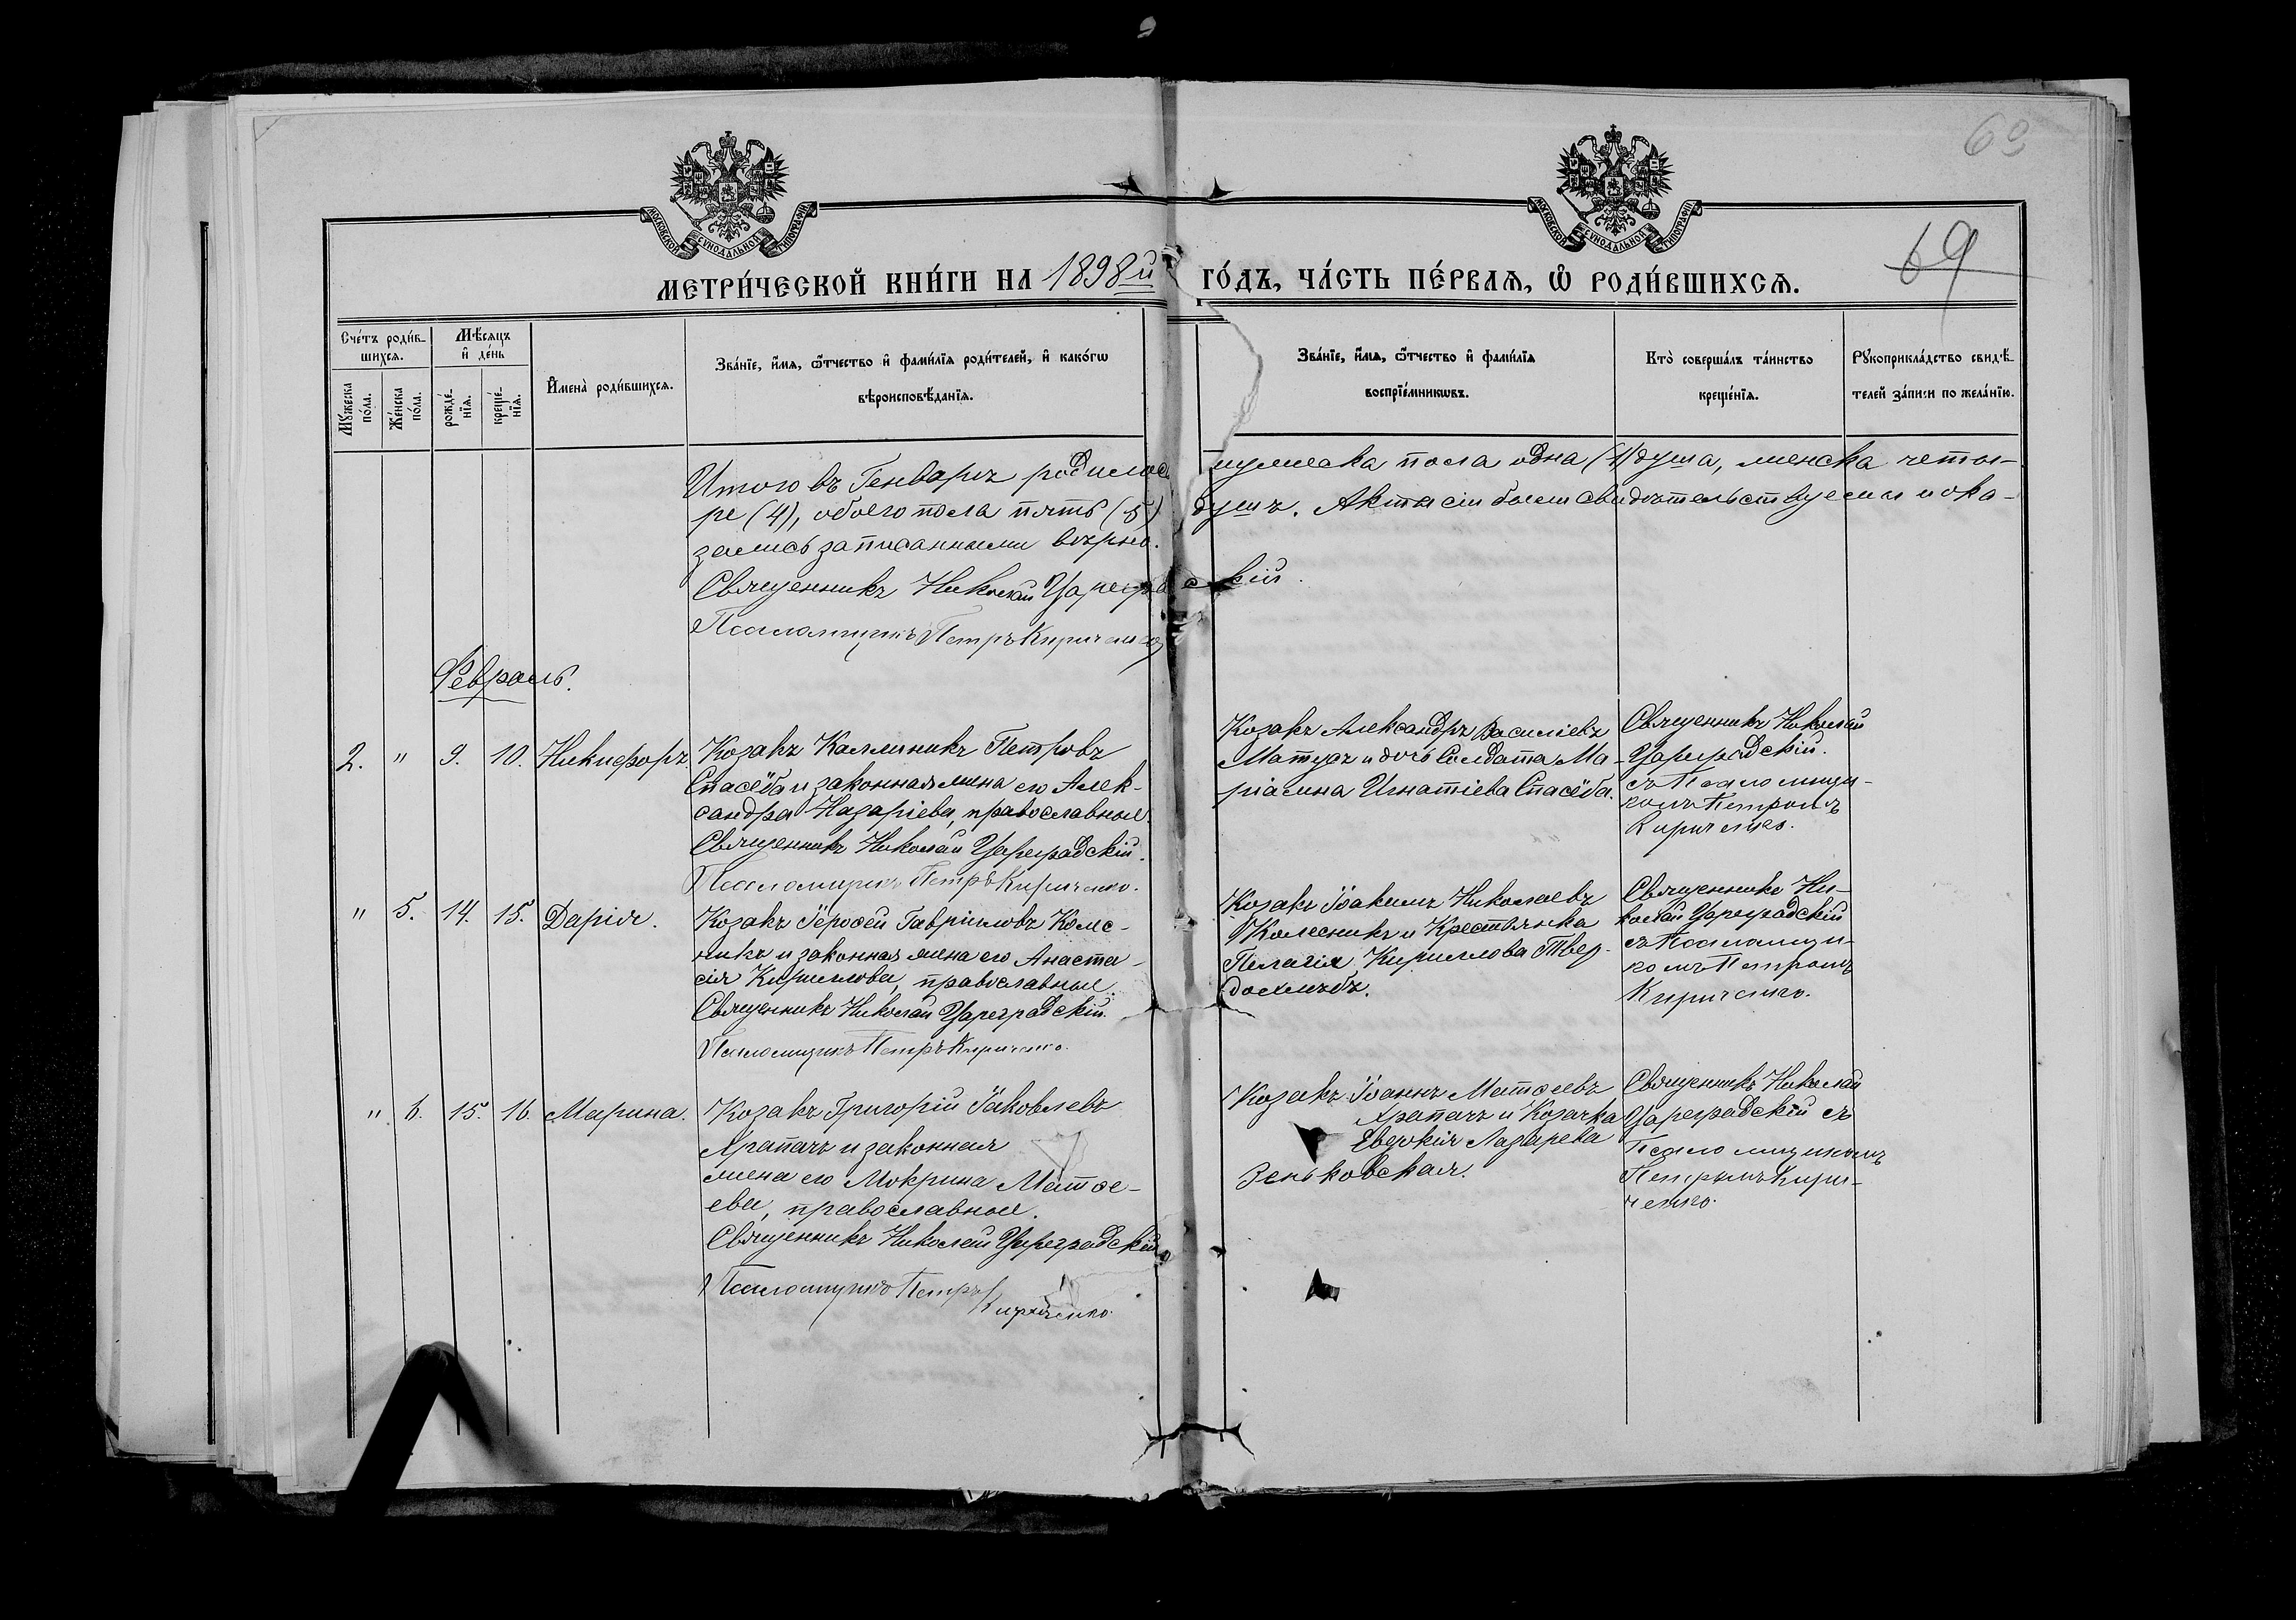 60
69
МОСКОВСКОЙ СѴНОДАЛЬНОЙ ТИПОГРАФІИ
МОСКОВСКОЙ СѴНОДАЛЬНОЙ ТИПОГРАФІИ
МЕТРИ́ЧЕСКОЙ КНИ́ГИ НА 1898й ГО́ДЪ, ЧА́СТЬ ПЕ́РВАѦ, Ѡ҆ РОДИ́ВШИХСѦ.
Сче́тъ роди́в-
шихсѧ.
Мѣ́сѧцъ
и҆ де́нь
Мꙋ́жеска
по́ла.
Же́нска
по́ла.
рожде́-
нїѧ.
креще́-
нїѧ.
И҆мена̀ роди́вшихсѧ.
Зва́нїе, и҆́мѧ, ѻ҆́тчество и҆ фами́лїѧ роди́телей, и҆ како́гѡ
вѣроисповѣ́данїѧ.
Зва́нїе, и҆́мѧ, ѻ҆́тчество и҆ фами́лїѧ
воспрїе́мникѡвъ.
Кто̀ соверша́лъ та́инство
креще́нїѧ.
Рꙋкоприкла́дство свидѣ́-
телей за́писи по жела́нїю.
Итого въ Генварѣ родилось мужеска пола одна (1) душа, женска четы-
ре (4), обоего пола пять (5) душъ. Акты сіи были свидѣтельствуемы и ока-
зались записанными вѣрно.
Священникъ Николай Цареградскій.
Псаломщикъ Петръ Кириченко
Февраль.
2. " 9. 10. Никифоръ.
Козакъ Каллиникъ Петровъ
Спасёба и законная жена его Алек-
сандра Назаріева, православные.
Священникъ Николай Цареградскій.
Псаломщикъ Петръ Кириченко.
Козакъ Александръ Василіевъ
Матуаъ и дочь Солдата Ма-
ріамна Игнатіева Спасёба.
Священникъ Николай
Цареградскій.
съ Псаломщи-
комъ Петромъ
Кириченко.
" 5. 14. 15. Дарія.
Козакъ Іеросей Гавріиловъ Колес-
никъ и законная жена его Анаста-
сія Кириллова, православные.
Священникъ Николай Цареградскій.
Псаломщикъ Петръ Кириченко.
Козакъ Іоакимъ Николаевъ
Колесникъ и Крестьянка
Пелагія Кириллова Твер-
дохлѣбъ.
Священникъ Ни-
колай Цареградскій
съ Псаломщи-
комъ Петромъ
Кириченко.
" 6. 15. 16. Марина.
Козакъ Григорій Іаковлевъ
Храпачъ и законная
жена его Мокрина Матѳе-
ева, православные.
Священникъ Николай Цареградскій
Псаломщикъ Петръ
Кириченко.
Козакъ Іоаннъ Матѳеевъ
Храпачъ и Козачка
Евдокія Лазарева
Зеньковская.
Священникъ Николай
Цареградскій съ
Псаломщикомъ
Петромъ Кири-
ченко.